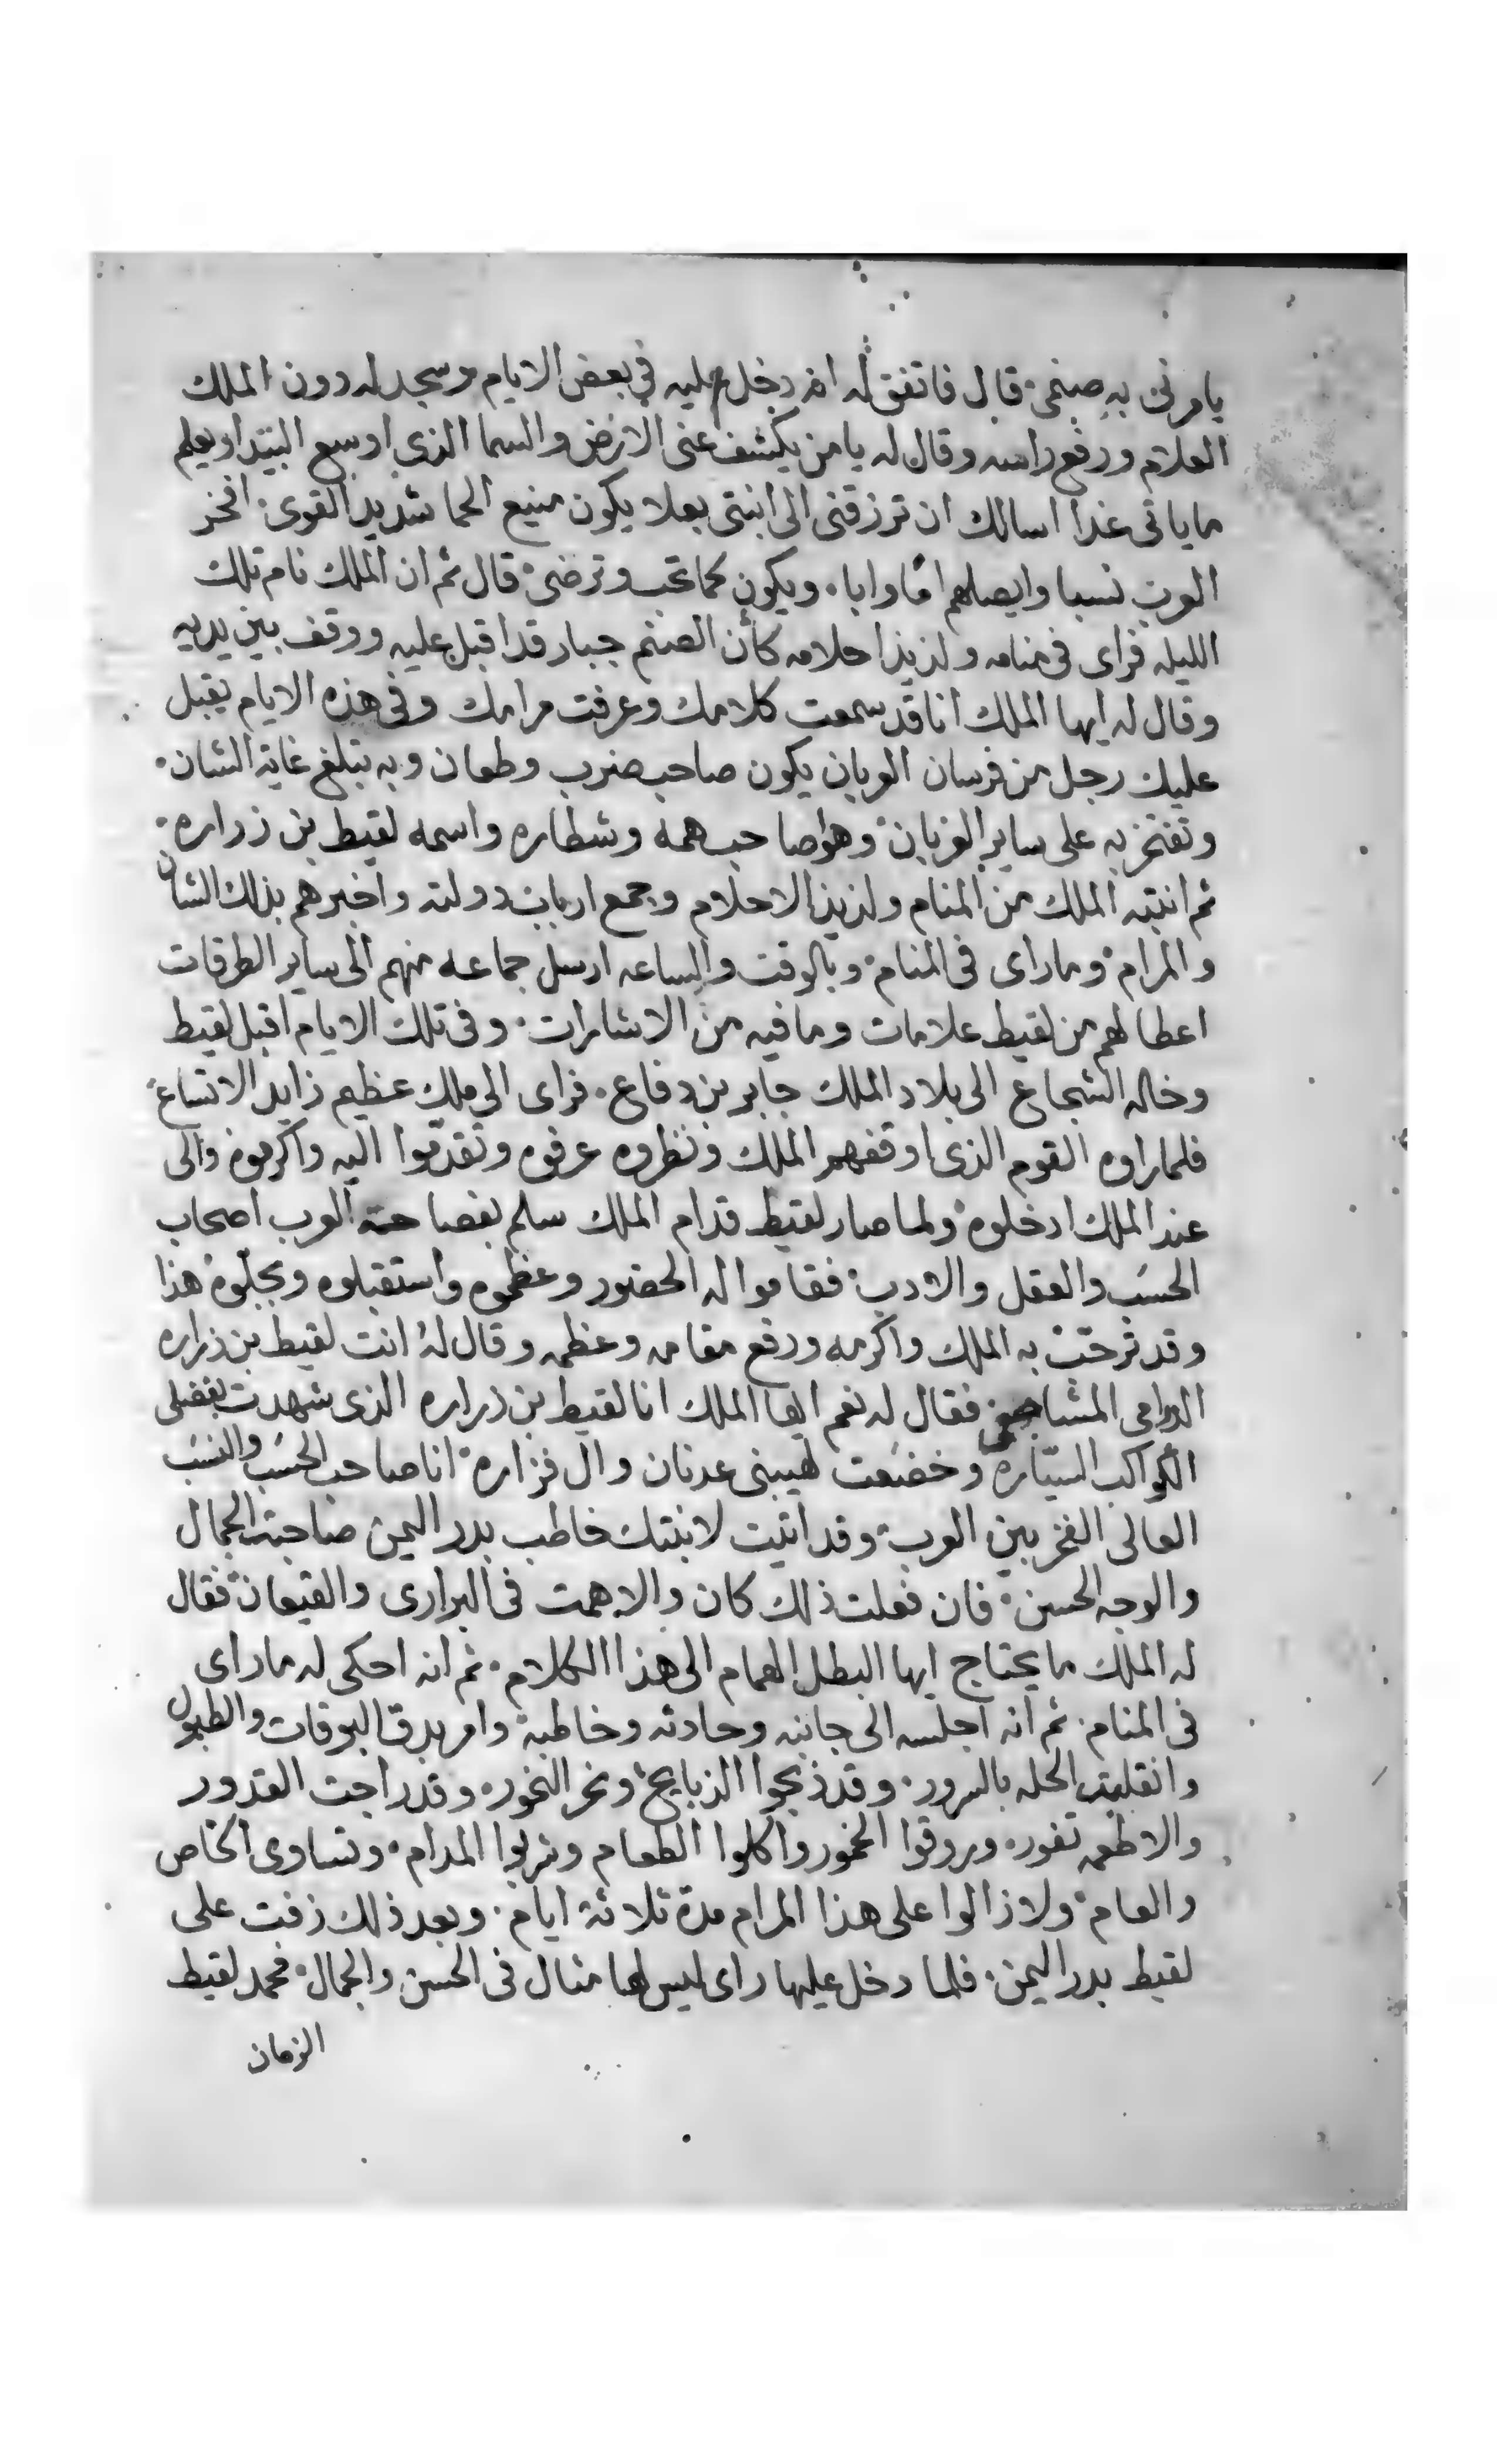 يامرنى به صنمى. قال فاتفق له انه دخل عليه فى بعض الايام وسجد له دون الملك
العلام ورفع راسه وقال له يا من يكشف عنى الارض والسما الذى اوسع البيدا ويعلم
ما ياتى غدا اسالك ان ترزقنى الى ابنتى بعلا يكون منيع الحما شديد القوى. افخر
العرب نسبا وايصلهم امّا وابا. ويكون كما تحب وترضى. قال ثم ان الملك نام تلك
الليله فراى فى منامه ولذيذ احلامه كأن الصنم جبار قد اقبل عليه ووقف بين يديه
وقال له ايها الملك انا قد سمعت كلامك وعرفت مرامك وفى هذه الايام يقبل
عليك رجل من فرسان العربان يكون صاحب ضرب وطعان وبه تبلغ غاية الشان.
وتفتخر به على ساير العربان. وهو صاحب همه وشطاره واسمه لقيط بن زراره.
ثم انتبه الملك من المنام ولذيذ الاحلام وجمع ارباب دولته واخبرهم بذلك الشان
والمرام. وما راى فى المنام. وبالوقت والساعه ارسل جماعه منهم الى ساير الطرقات
اعطا لهم من لقيط علامات وما فيه من الاشارات. وفى تلك الايام اقبل لقيط
وخاله الشجاع الى بلاد الملك جابر بن دفاع. فراى الى ملك عظيم زايد الاتساع
فلما راوه القوم الذى اوقفهم الملك ونظروه عرفوه وتقدّموا اليه واكرموه والى
عند الملك ادخلوه. ولما صار لقيط قدام الملك سلم بفصاحة العرب اصحاب
الحسَب والعقل والادب. فقاموا له الحضور وعظموه واستقبلوه وبجّلوه. هذا
وقد ترحّب به الملك واكرمه ورفع مقامه وعظمه وقال له انت لقيط بن زراره
الدرامى فقال له نعم ايها الملك انا لقيط بن زراره الذى شهدت بفضلى
الكواكب السيّارة وخضعت لهيبتى عدنان وال فزاره. انا صاحب الحسَب والنسَب
العالى الفخر بين العرب. وقد اتيت لابنتك خاطب بدر اليمن صاحبة الجمال
والوجه الحسن. فان فعلت ذلك كان والا همت فى البرارى والقيعان. فقال
له الملك ما يحتاج ايها البطل الهمام الى هذا الكلام. ثم انه احكى له ما راى
فى المنام. ثم انه اجلسه الى جانبه وحادثه وخاطبه. وامر بدق البوقات والطبول
وانقلبت الحله بالسرور. وقد ذبحوا الذبايح ونحر النحور. وقد راجت القدور
والاطعمه تفور. وروقوا الخمور واكلوا الطعام وشربوا المدام. وتساوى الخاص
والعام. ولا زالوا على هذا المرام مدة ثلاثة ايام. وبعد ذلك زفت على
لقيط بدر اليمن. فلما دخل عليها راى ليس لها مثال فى الحسن والجمال. فحمد لقيط
الزمان